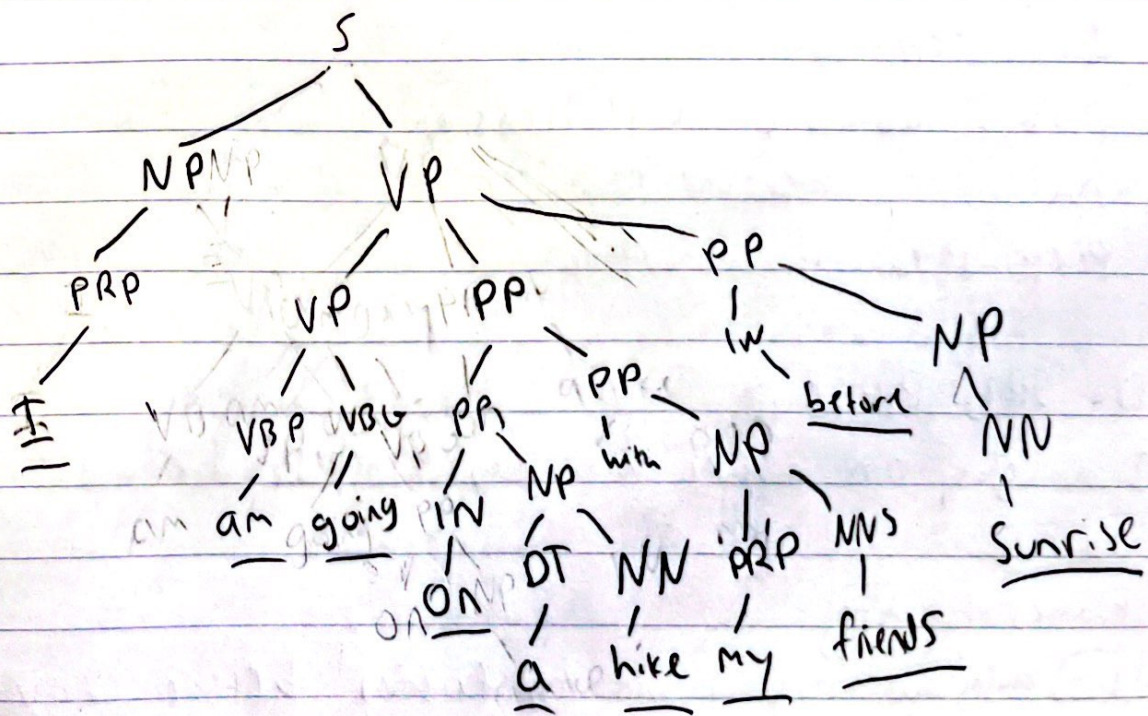 S
NP VP
PRP VP PP PP
I VBP VBG PP PP IN NP
am going IN NP with NP before NN
on DT NN PRP NNS Sunrise
a hike my friends